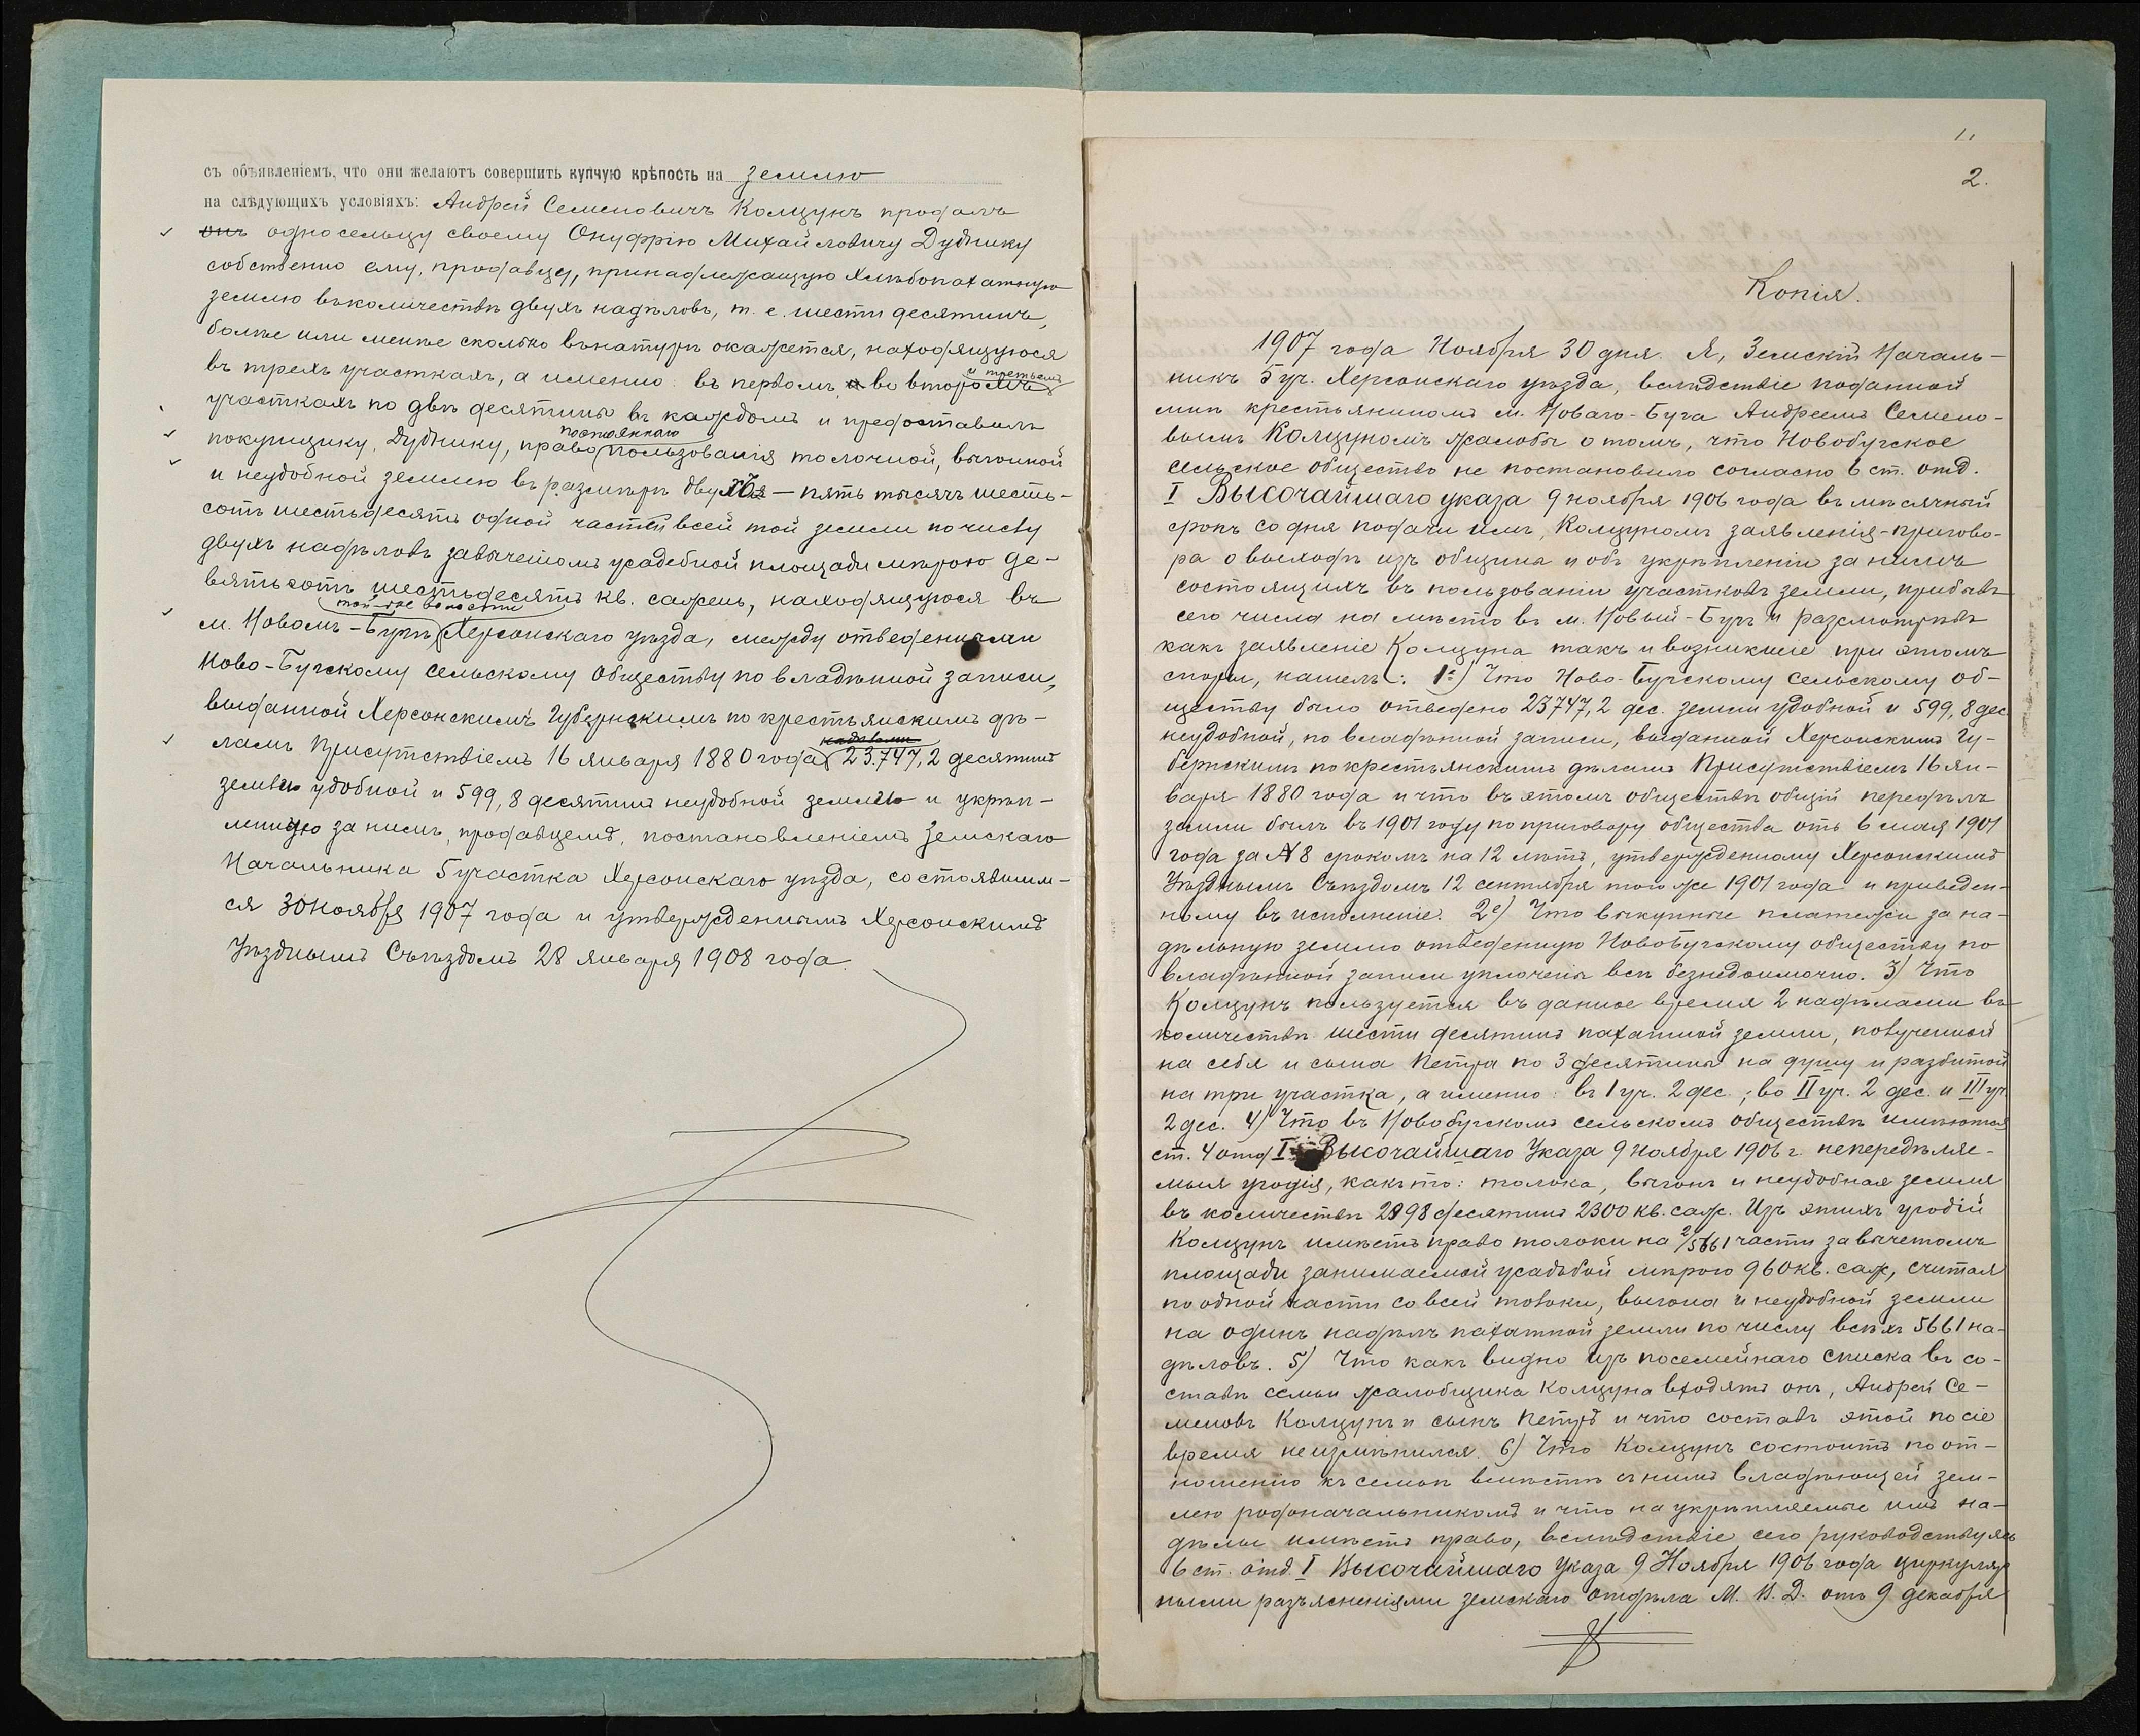 съ объявленіемъ, что они желаютъ совершить купчую крѣпость на землю
на слѣдующихъ условіяхъ: Андрей Семеновичъ Колцунъ продалъ
онъ односельцу своему Онуфрію Михайловичу Дуднику
собственно ему, продавцу, принадлежащую хлѣбопахатную
землю въ количествѣ двухъ надѣловъ, т. е. шести десятинъ,
болѣе или менѣе сколько въ натурѣ окажется, находящуюся
въ трехъ участкахъ, а именно: въ первомъ, и во второмъ и третьемъ
участкахъ по двѣ десятины въ каждомъ и предоставилъ
покупщику, Дуднику, право постояннаго пользованія толочной, выгонной
и неудобной землею въ размѣрѣ двухъ — пять тысячъ шесть-
сотъ шестьдесятъ одной частей всей той земли по числу
двухъ надѣловъ за вычетомъ усадебной площади мѣрою де-
вятьсотъ шестьдесятъ кв. сажень, находящуюся въ
м. Новомъ-Бугѣ, той-же волости Херсонскаго уѣзда, между отведенными
Ново-Бугскому сельскому обществу по владѣнной записи,
выданной Херсонскимъ Губернскимъ по крестьянскимъ дѣ-
ламъ Присутствіемъ 16 января 1880 года 23.747,2 десятинъ
земли удобной и 599,8 десятинъ неудобной земли и укрѣп-
ленную за нимъ, продавцемъ, постановленіемъ Земскаго
Начальника 5 участка Херсонскаго уѣзда, состоявшим-
ся 30 ноября 1907 года и утвержденнымъ Херсонскимъ
Уѣзднымъ Съѣздомъ 28 января 1908 года.
11
2.
Копія.
1907 года Ноября 30 дня. Я, Земскій Началь-
никъ 5 уч. Херсонскаго уѣзда, вслѣдствіе поданной
мнѣ крестьяниномъ м. Новаго-Буга Андреемъ Семено-
вымъ Колцуномъ жалобы о томъ, что Новобугское
сельское общество не постановило согласно 6 ст. отд.
I Высочайшаго указа 9 ноября 1906 года въ мѣсячный
срокъ со дня подачи имъ, Колцуномъ заявленія-пригово-
ра о выходѣ изъ общины и объ укрѣпленіи за нимъ
состоящихъ въ пользованіи участковъ земли, прибывъ
сего числа на мѣсто въ м. Новый-Бугъ и разсмотрѣвъ
какъ заявленіе Колцуна такъ и возникшіе при этомъ
споры, нашелъ: 1е) Что Ново-Бугскому сельскому об-
ществу было отведено 23747,2 дес. земли удобной и 599,8 дес.
неудобной, по владѣнной записи, выданной Херсонскимъ Гу-
бернскимъ по крестьянскимъ дѣламъ Присутствіемъ 16 ян-
варя 1880 года и что въ этомъ обществѣ общій передѣлъ
земли былъ въ 1901 году по приговору общества отъ 6 мая 1901
года за № 8 срокомъ на 12 лѣтъ, утвержденному Херсонскимъ
Уѣзднымъ Съѣздомъ 12 сентября того же 1901 года и приведен-
ному въ исполненіе. 2е) Что выкупные платежи за на-
дѣльную землю отведенную Новобугскому обществу по
владѣнной записи уплочены всѣ безнедоимочно. 3) Что
Колцунъ пользуется въ данное время 2 надѣлами въ
количествѣ шести десятинъ пахатной земли, полученной
на себя и сына Петра по 3 десятины на душу и разбитой
на три участка, а именно: въ I уч. 2 дес.; во II уч. 2 дес. и III уч.
2 дес. 4) Что въ Новобугскомъ сельскомъ обществѣ имѣются
ст. 4 отд I Высочайшаго Указа 9 ноября 1906 г. непередѣляе-
мыя угодія, какъ то: толока, выгонъ и неудобная земля
въ количествѣ 2898 десятинъ 2300 кв. саж. Изъ этихъ угодій
Колцунъ имѣетъ право толоки на 2/5661 части за вычетомъ
площади занимаемой усадьбой мѣрою 960 кв. саж, считая
по одной части со всей толоки, выгона и неудобной земли
на одинъ надѣлъ пахатной земли по числу всѣхъ 5661 на-
дѣловъ. 5) Что какъ видно изъ посемейнаго списка въ со-
ставѣ семьи жалобщика Колцуна входятъ онъ, Андрей Се-
меновъ Колцунъ и сынъ Петръ и что составъ этой по сіе
время не измѣнился. 6) Что Колцунъ состоитъ по от-
ношенію къ семьѣ вмѣстѣ съ нимъ владѣющей зем-
лею родоначальникомъ и что на укрѣпляемые имъ на-
дѣлы имѣетъ право, вслѣдствіе сего руководствуясь
6 ст. отд. I Высочайшаго Указа 9 Ноября 1906 года циркуляр
ными разъясненіями земскаго отдѣла М. В. Д. отъ 9 декабря